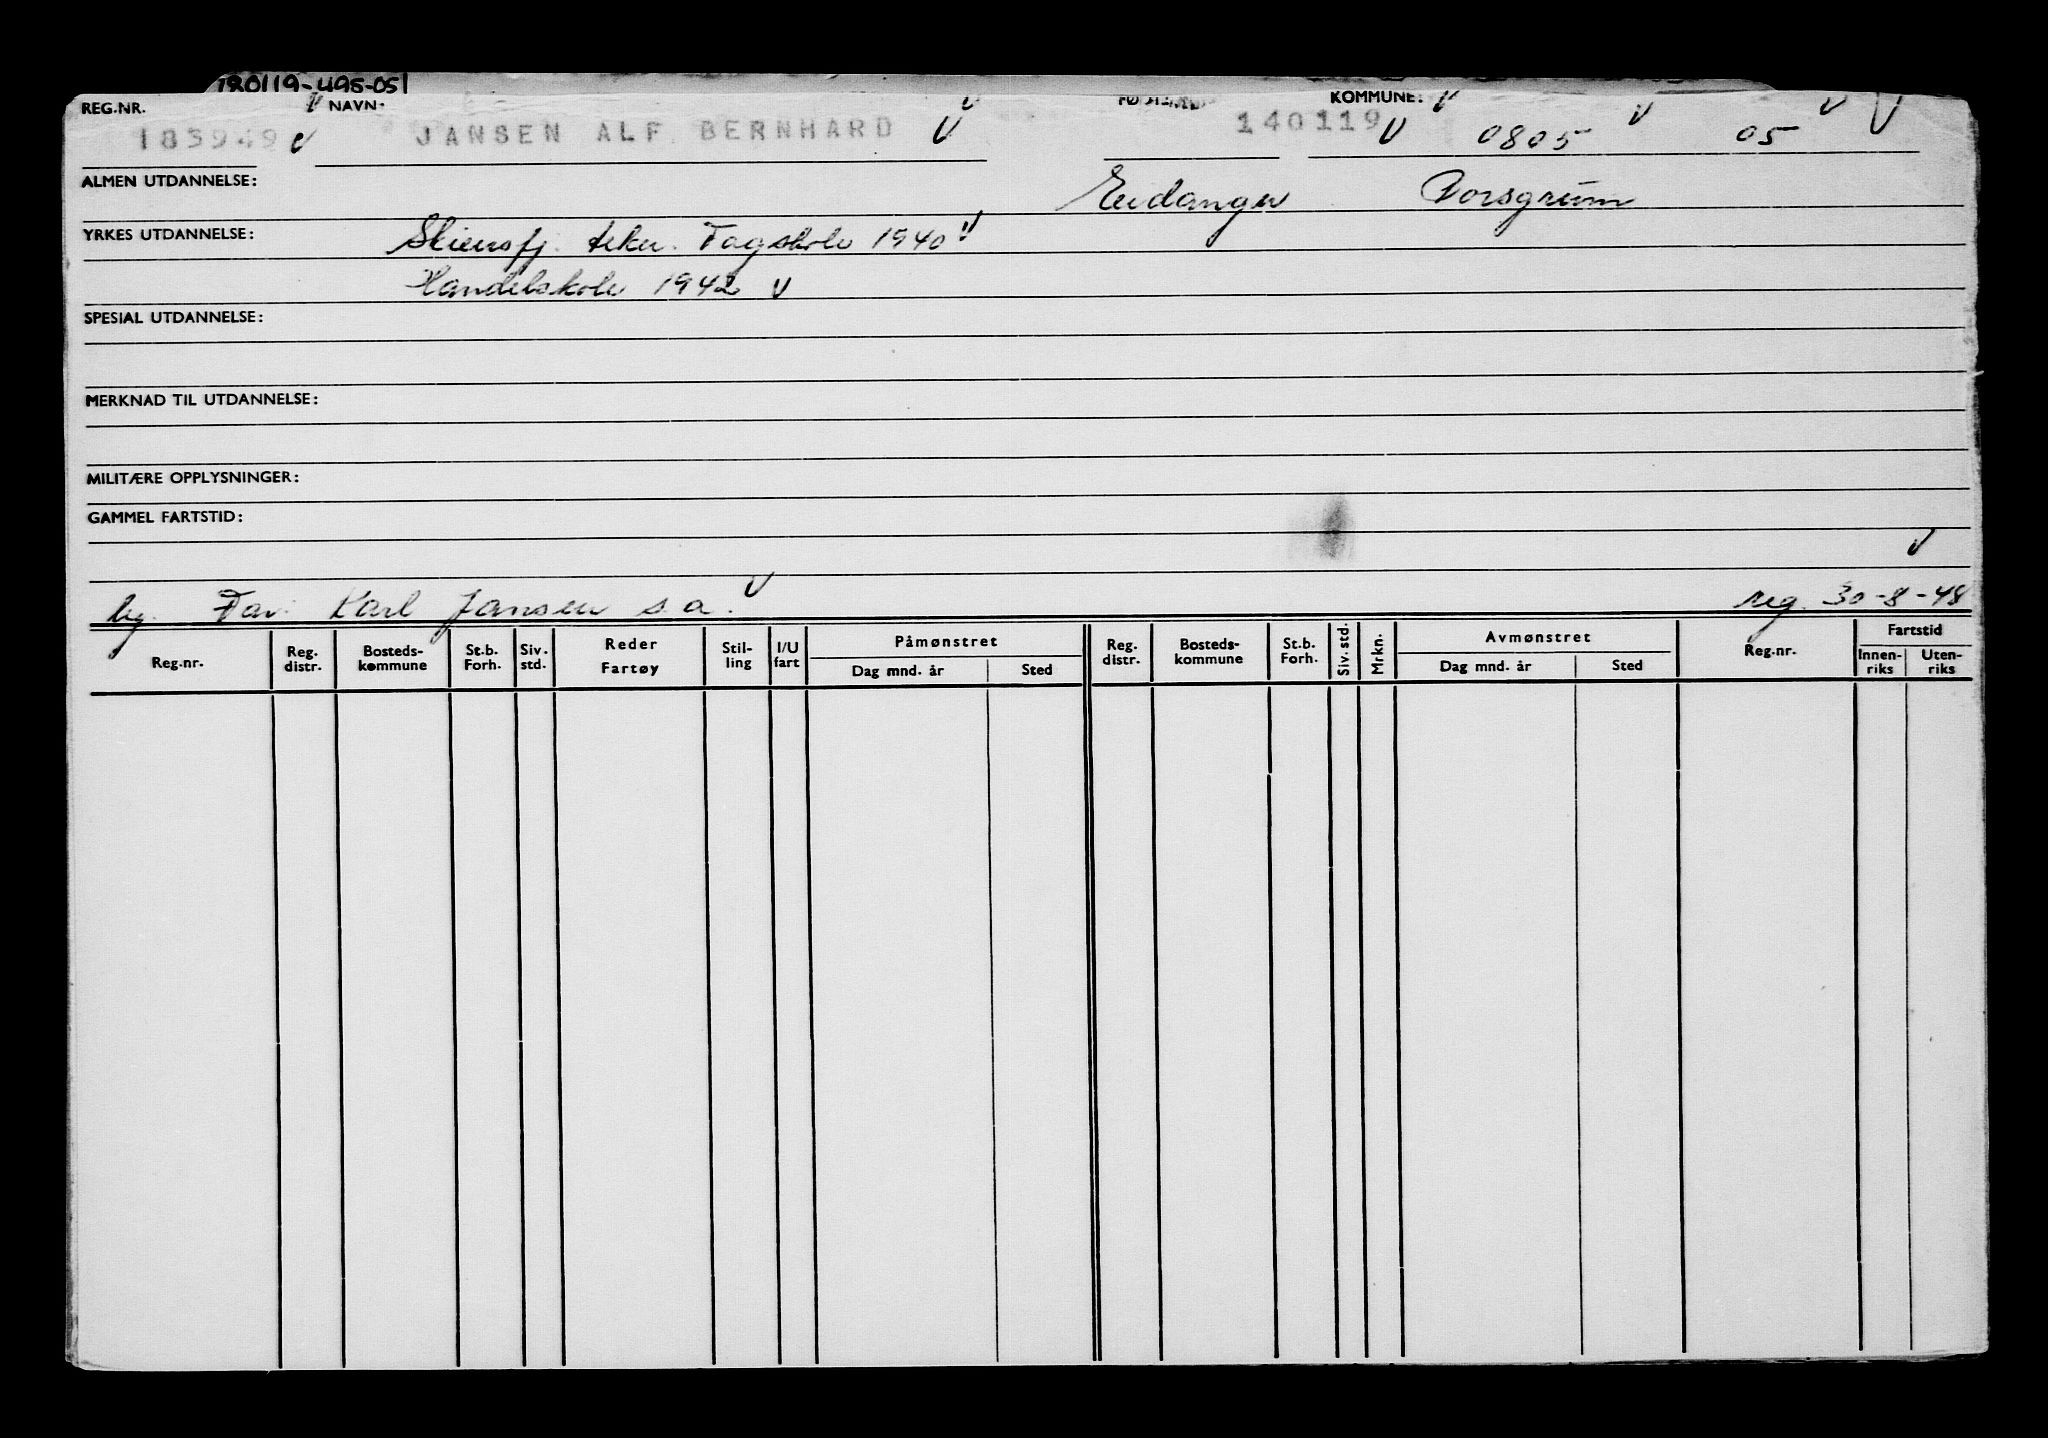 REG.NR. V NAVN. V KOMMUNE: V V V V
V JANSEN ALF BERNHARD V 140119 V 0805 05
ALMEN UTDANNELSE: Porsgrunn
YRKES UTDANNELSE: Skiensfj. tekn. Fagskole 1940 V
Handelskole 1942 V
SPESIAL UTDANNELSE:
MERKNAD TIL UTDANNELSE:
MILITÆRE OPPLYSNINGER:
GAMMEL FARTSTID:
V
Far Karl Jansen s.a. V reg. 30-8-48
Reg.nr. Reg. distr. Bosteds- kommune St.b. Forh. Siv. std. Reder Fartøy Stil- ling I/U fart Påmønstret Dag mnd. år Sted Reg. distr. Bosteds- kommune St.b. Forh. Siv. std. Mrkn. Avmønstret Dag mnd. år Sted Reg.nr. Fartstid Innen- riks Uten- riks